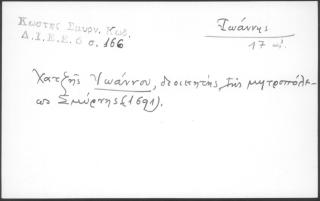 Κωστῆς Σμυρν. Κωδ.
Δ.Ι.Ε.Ε. 6 σ. 166
Ἰωάννης
17 αἰ.
Χατζῆς Ἰωάννου, διοικητής τῆς μητροπόλε-
ως Σμύρνης (1691).